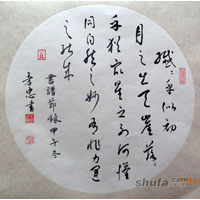 纖〻乎似初
月之出天崖落〻
乎猶衆星之列河漢
同自然之妙有非力運
之能成
書譜節録甲午冬
孝忠書
shufa.com